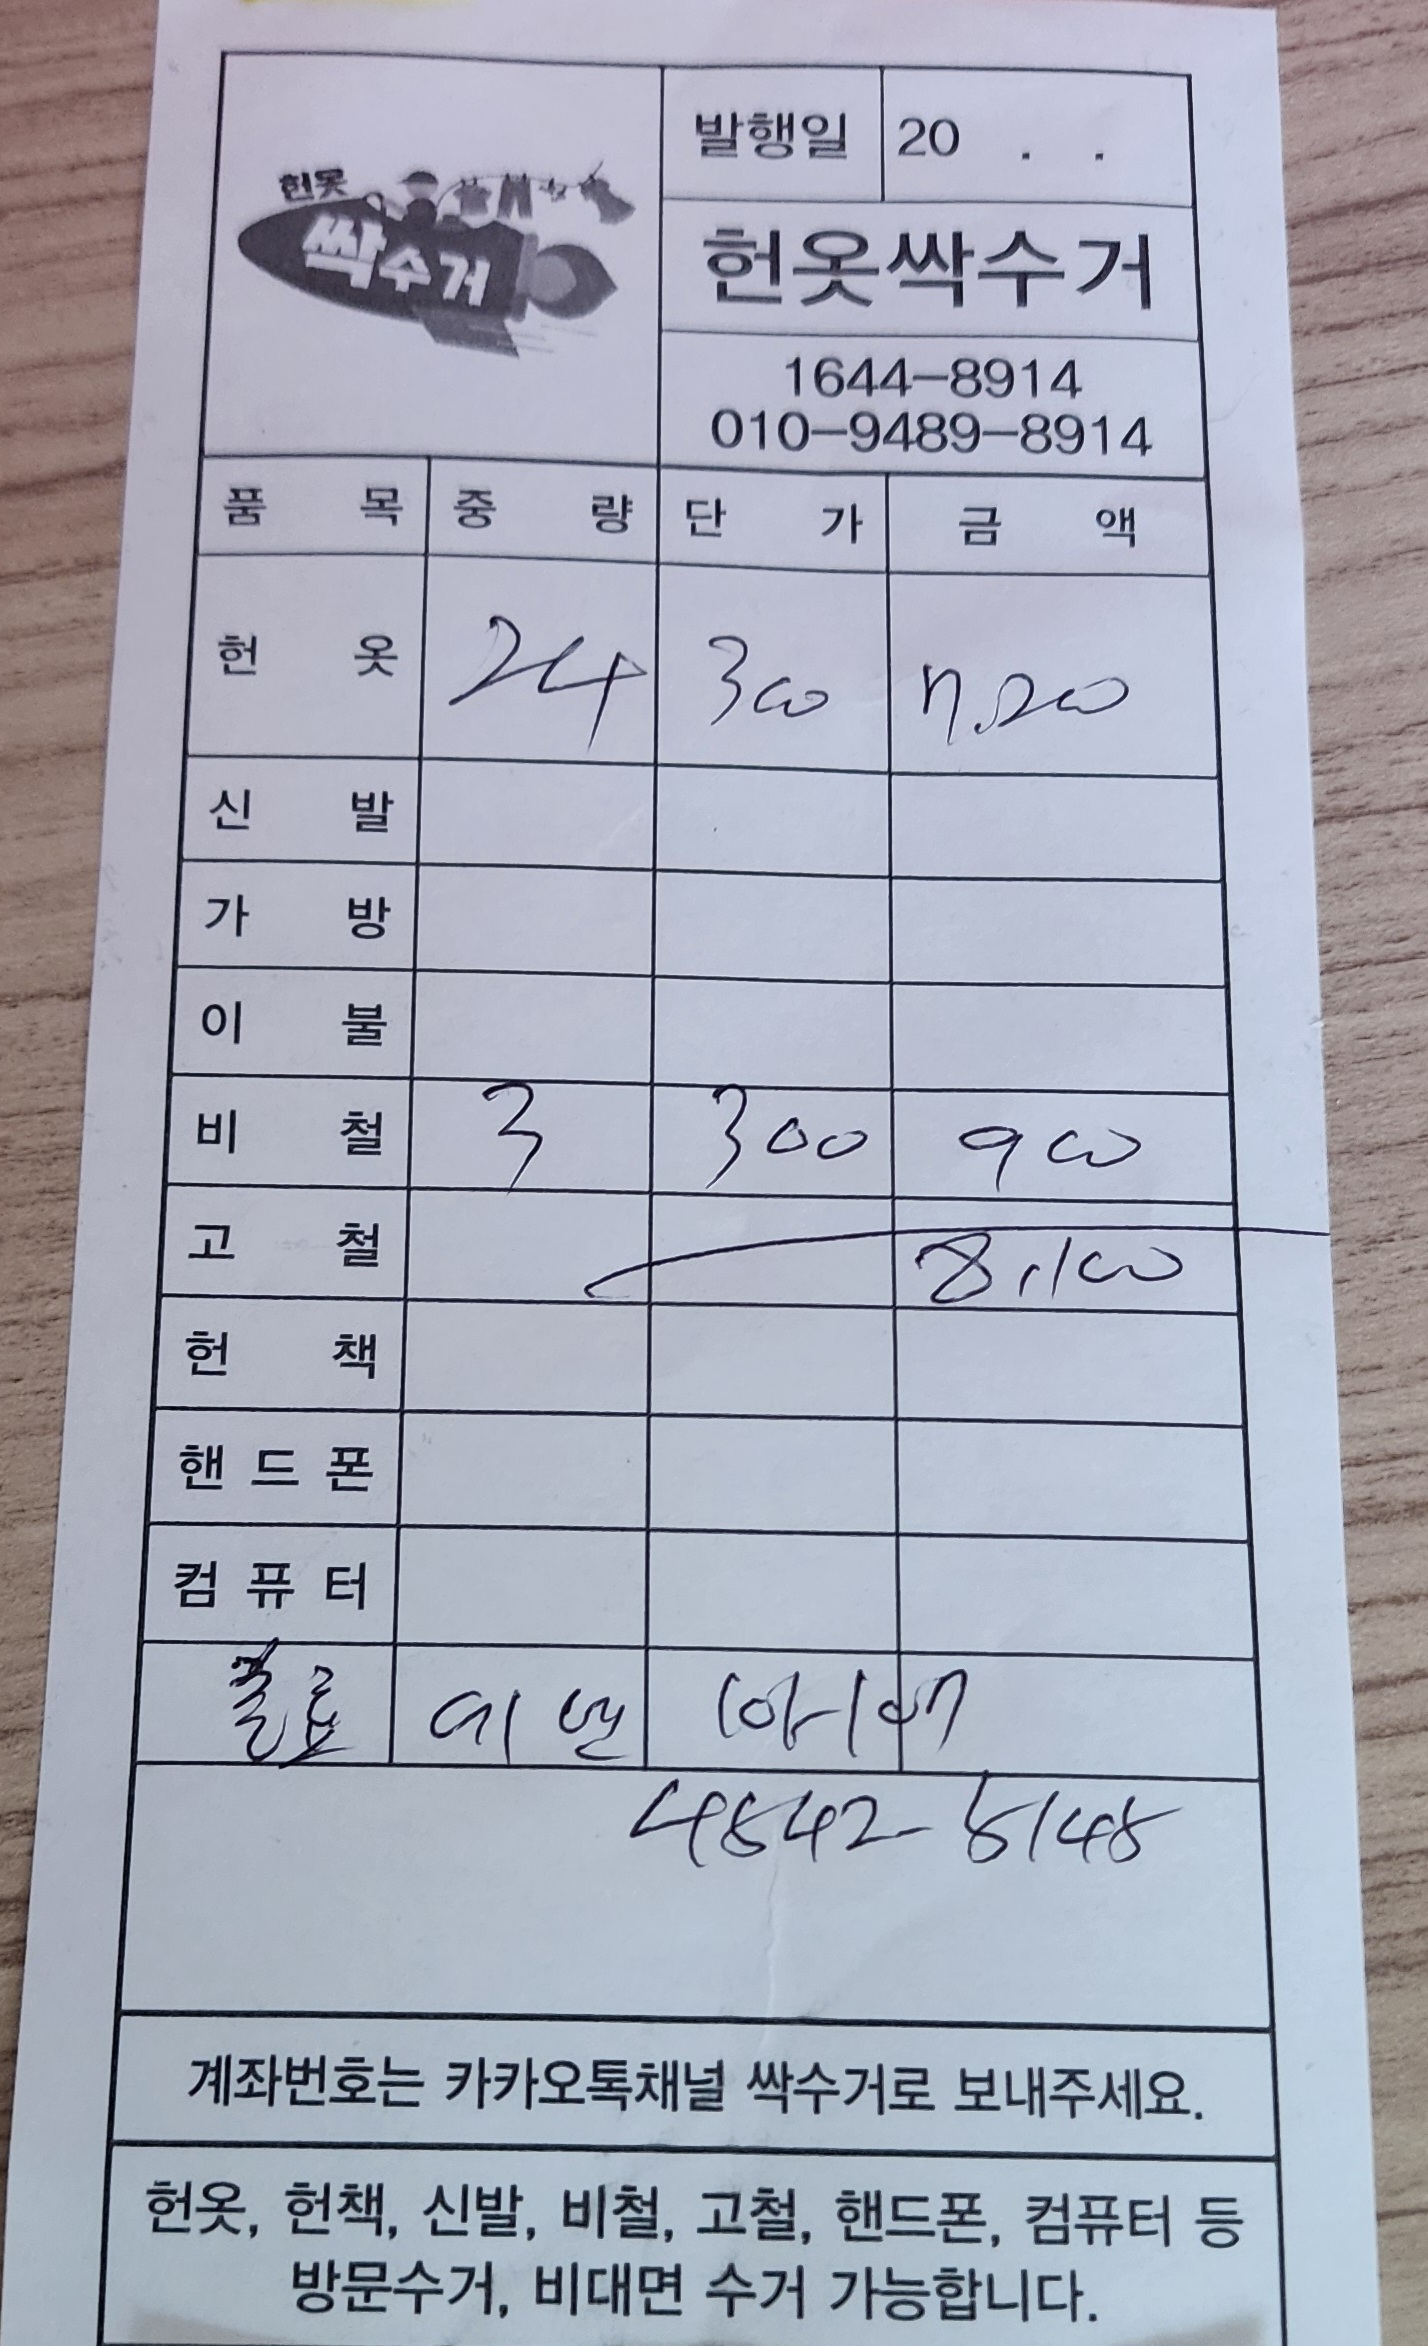 발행일 20 . .
헌옷
싹수거
헌옷싹수거
1644-8914
010-9489-8914
품 목 중 량 단 가 금 액
헌 옷 24 300 7,200
신 발
가 방
이 불
비 철 3 300 900
고 철 8,100
헌 책
핸 드 폰
컴 퓨 터
계좌번호는 카카오톡채널 싹수거로 보내주세요.
헌옷, 헌책, 신발, 비철, 고철, 핸드폰, 컴퓨터 등
방문수거, 비대면 수거 가능합니다.